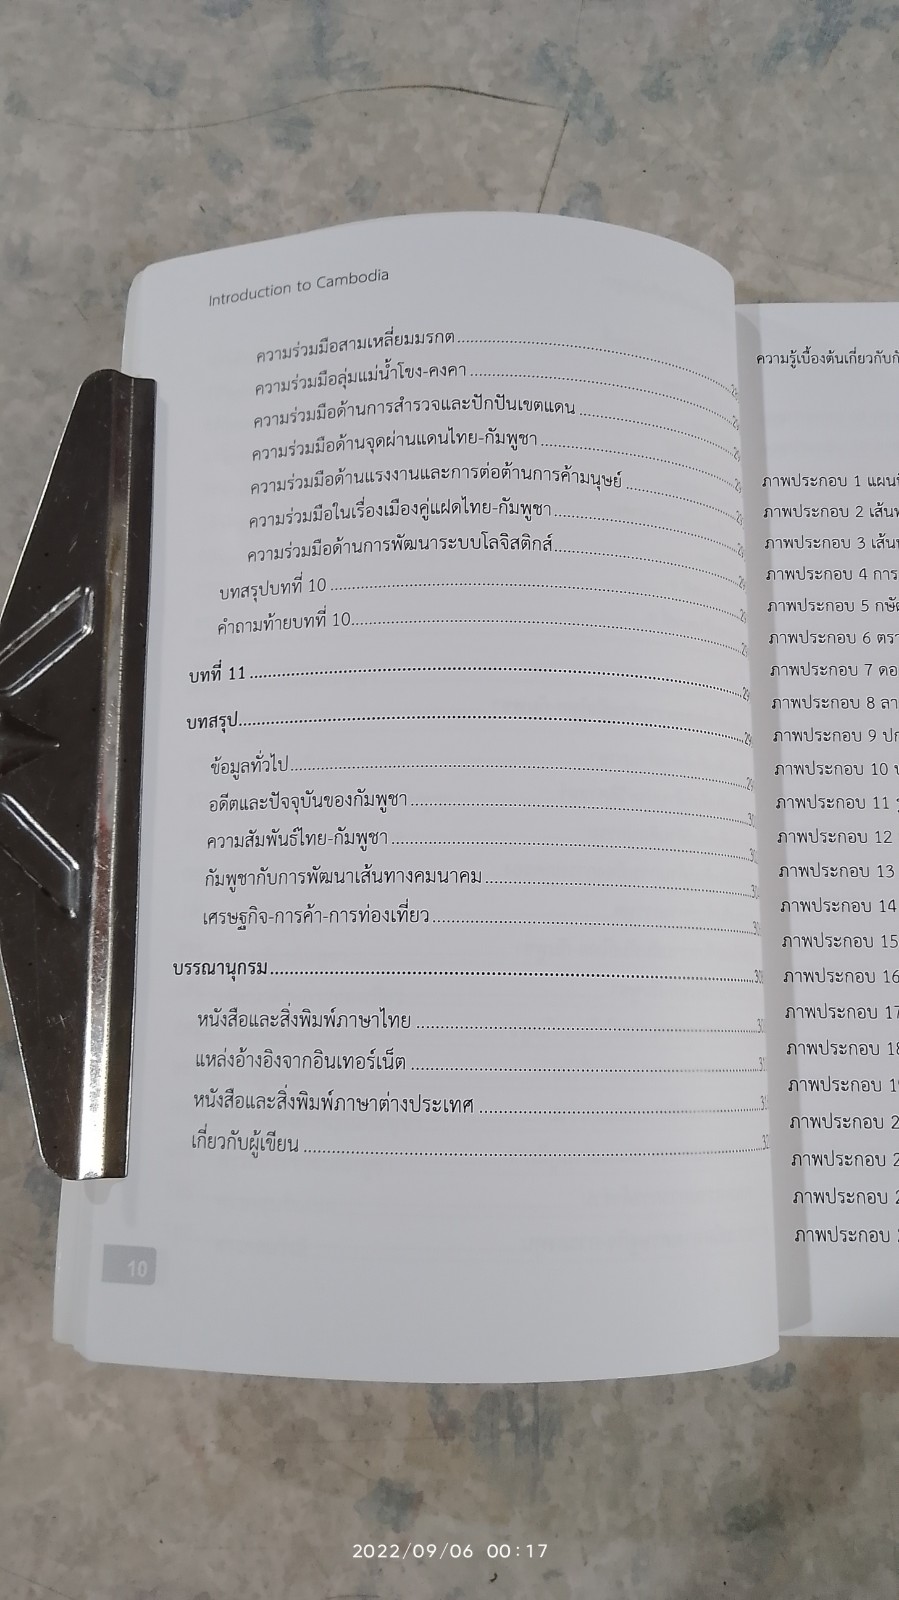 Introduction to Cambodia
ความร่วมมือสามเหลี่ยมมรกต
ความร่วมมือลุ่มแม่น้ำโขง-คงคา
ความร่วมมือด้านการสำรวจและปักปันเขตแดน
ความร่วมมือด้านจุดผ่านแดนไทย-กัมพูชา
ความร่วมมือด้านแรงงานและการต่อต้านการค้ามนุษย์
ความร่วมมือในเรื่องเมืองคู่แฝดไทย-กัมพูชา
ความร่วมมือด้านการพัฒนาระบบโลจิสติกส์
บทสรุปบทที่ 10
คำถามท้ายบทที่ 10
บทที่ 11
บทสรุป
ข้อมูลทั่วไป
อดีตและปัจจุบันของกัมพูชา
ความสัมพันธ์ไทย-กัมพูชา
กัมพูชากับการพัฒนาเส้นทางคมนาคม
เศรษฐกิจ-การค้า-การท่องเที่ยว
บรรณานุกรม
หนังสือและสิ่งพิมพ์ภาษาไทย
แหล่งอ้างอิงจากอินเทอร์เน็ต
หนังสือและสิ่งพิมพ์ภาษาต่างประเทศ
เกี่ยวกับผู้เขียน
10
ความรู้เบื้องต้นเกี่ยวกับ
ภาพประกอบ 1
ภาพประกอบ 2
ภาพประกอบ 3
ภาพประกอบ 4 การ
ภาพประกอบ 5
ภาพประกอบ 6
ภาพประกอบ 7
ภาพประกอบ 8
ภาพประกอบ 9
ภาพประกอบ 10
ภาพประกอบ 11
ภาพประกอบ 12
ภาพประกอบ 13
ภาพประกอบ 14
ภาพประกอบ 15
ภาพประกอบ 16
ภาพประกอบ 17
ภาพประกอบ
ภาพประกอบ
ภาพประกอบ
ภาพประกอบ
ภาพประกอบ
ภาพประกอบ
2022/09/06 00:17